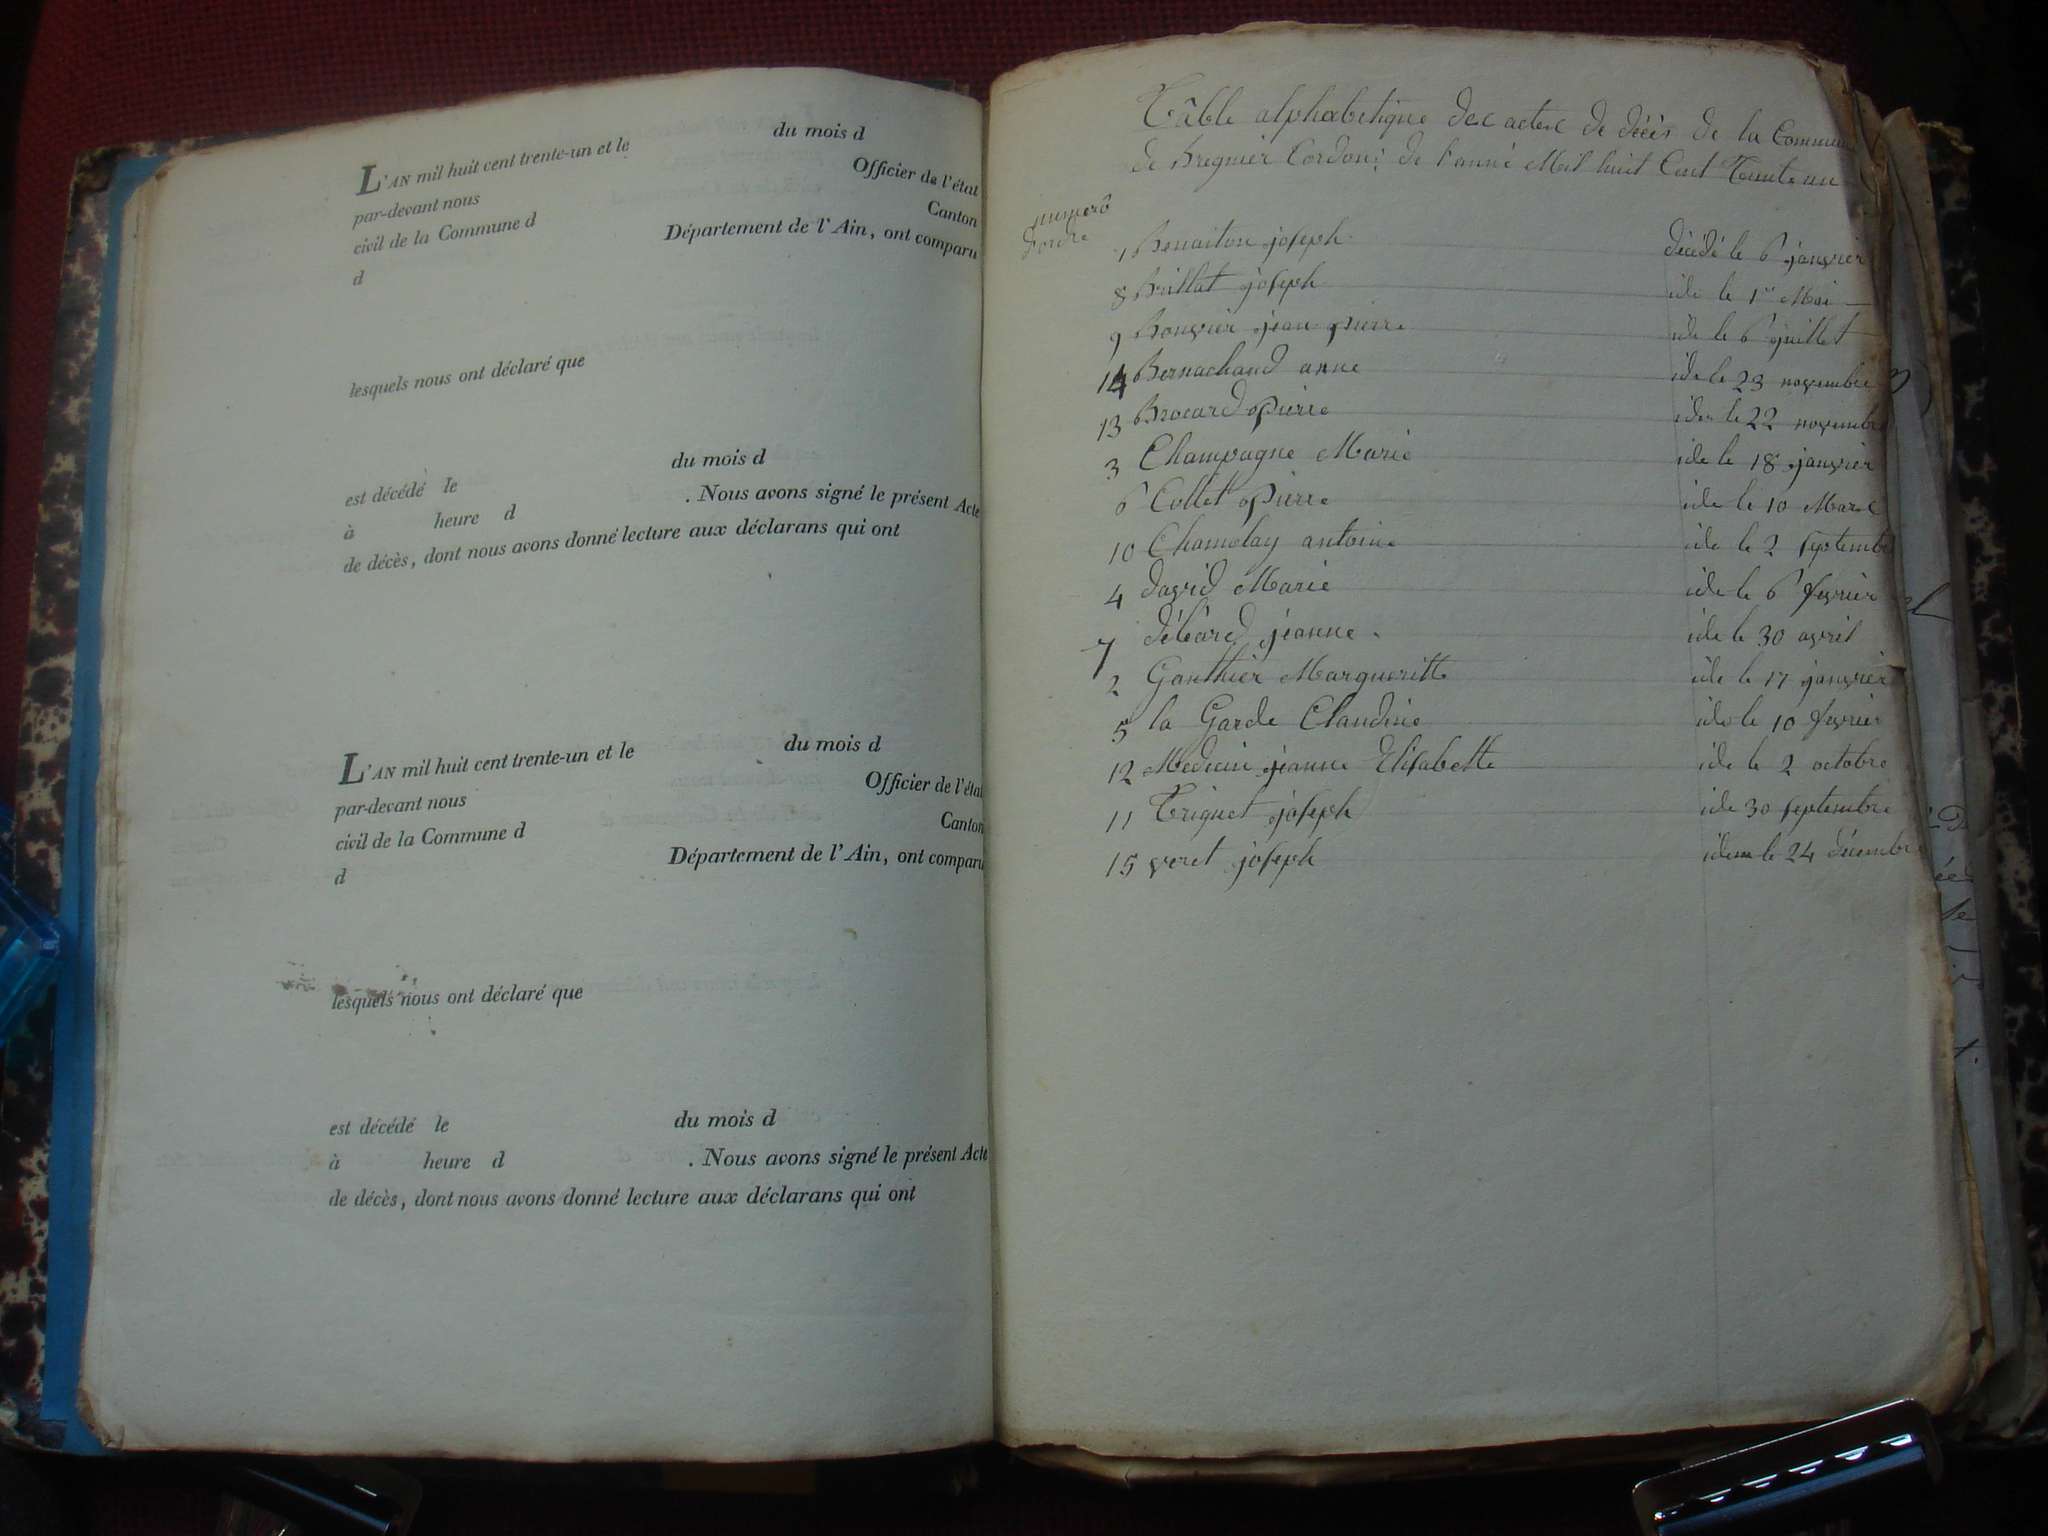 L'AN mil huit cent trente-un et le du mois d
par-devant nous Officier de l'état
civil de la Commune d Canton
d Département de l'Ain, ont comparu
lesquels nous ont déclaré que
est décédé le du mois d
à heure d . Nous avons signé le présent Acte
de décès, dont nous avons donné lecture aux déclarans qui ont
L'AN mil huit cent trente-un et le du mois d
par-devant nous Officier de l'état
civil de la Commune d Canton
d Département de l'Ain, ont comparu
lesquels nous ont déclaré que
est décédé le du mois d
à heure d . Nous avons signé le présent Acte
de décès, dont nous avons donné lecture aux déclarans qui ont
Tâble alphabetique des actes de décès de la Commune
de Bregnier Cordon: de l'anné Mil huit Cent Trente un
numerô
d'ordre
1 Benaiton joseph décédé le 6 janvier
8 Brillat joseph ide le 1er Mai
9 Bouvier jean pierre ide le 6 juillet
14 Bernachaud anne ide le 23 novembre
13 Brocard pierre ide le 22 novembre
3 Champagne Marie ide le 18 janvier
6 Collet pierre ide le 10 Mars
10 Chamelay antoine ide le 2 septembre
4 david Marie ide le 6 fevrier
7 débard jeanne ide le 30 avril
2 Gauthier Margueritte ide le 17 janvier
5 la Garde Claudine ide le 10 fevrier
12 Medecin jeanne Elisabette ide le 2 octobre
11 Triquet joseph ide 30 septembre
15 veret joseph idem le 24 décembre